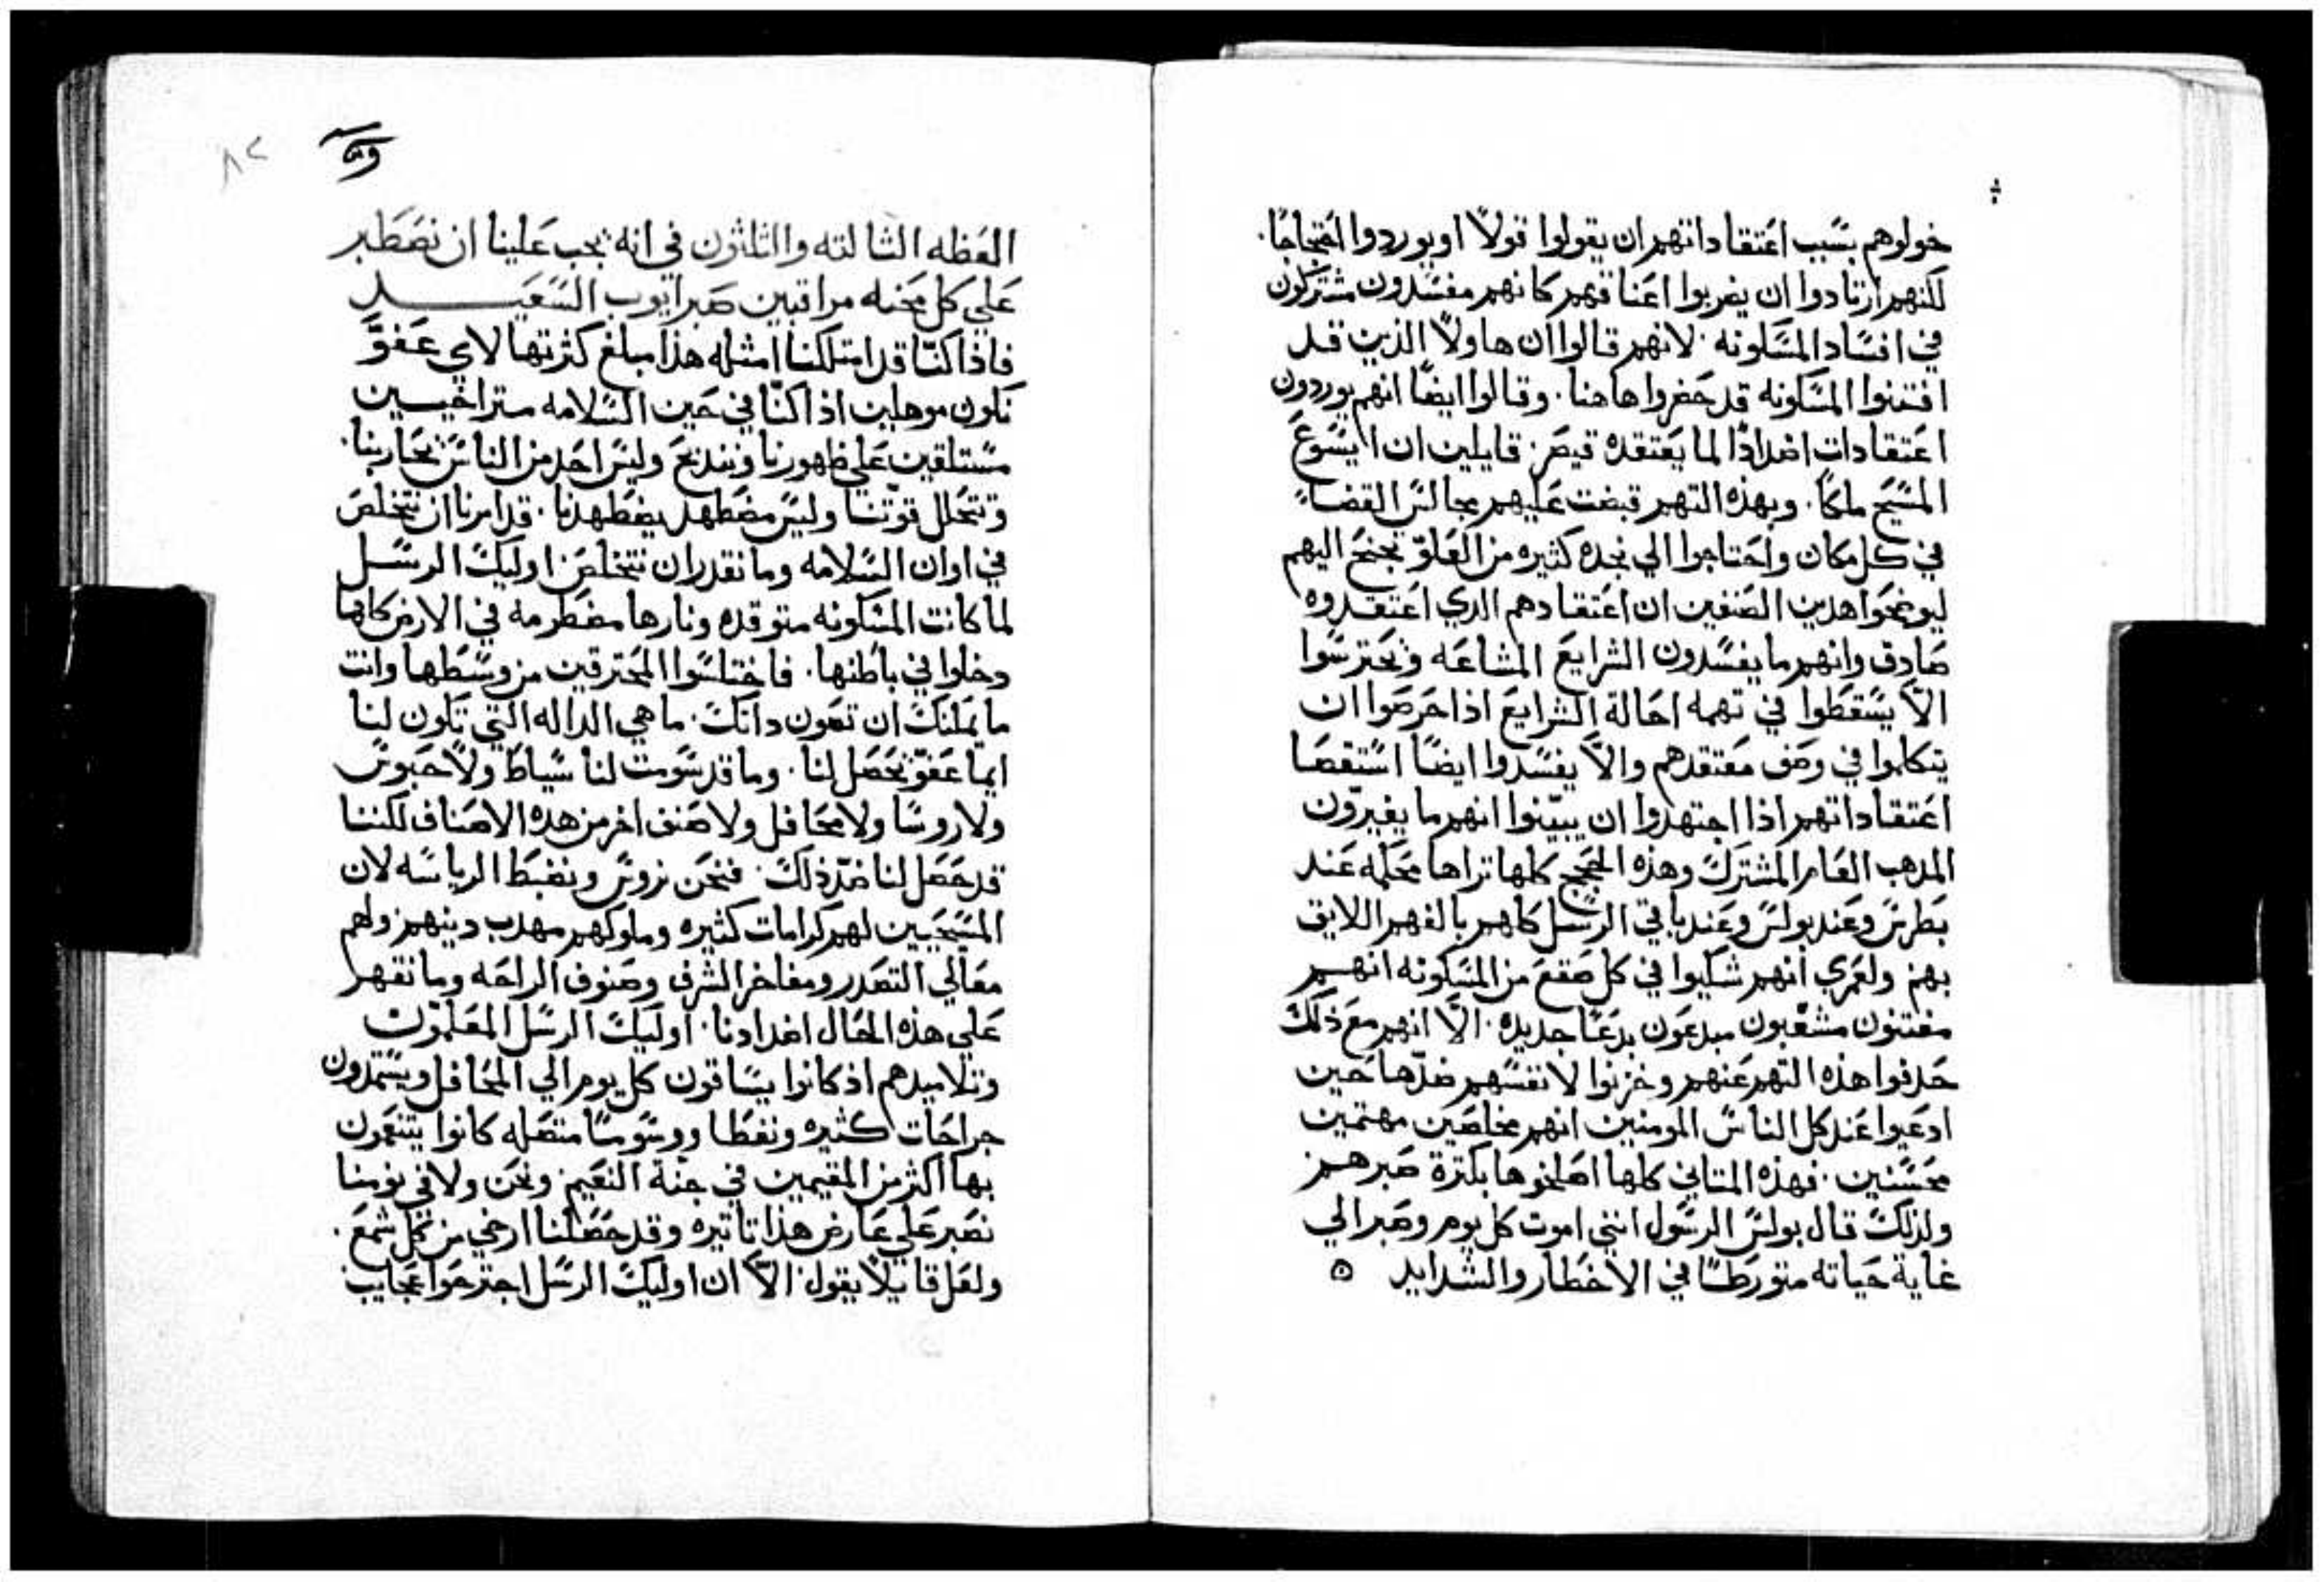 خولوهم بسبب اعتقاداتهم ان يقولوا قولاً او يوردوا احتجاجًا.
لكنهم ارتادوا ان يضربوا اعناقهم كانهم مفسدون مشتركون
في افساد المسكونه. لانهم قالوا ان هاولا الذين قد
افتنوا المسكونه قد حضروا هاهنا. وقالوا ايضًا انهم يوردون
اعتقادات اضدادًا لما يعتقده قيصر. قايلين ان ايسوع
المسيح ملكًا. وبهذه التهم قبضت عليهم مجالس القضاء
في كل مكان واحتاجوا الي نجده كثيره من العلوّ تجنح اليهم
ليوضحوا هدين الصنفين ان اعتقادهم الدي اعتقدوه
صادق وانهم ما يفسدون الشرايع المشاعه ويحترسوا
الاّ يسقطوا في تهمه احالة الشرايع اذا حرصوا ان
يتكلموا في وصف معتقدهم والاّ يفسدوا ايضًا استقصا
اعتقاداتهم اذا اجتهدوا ان يبيّنوا انهم ما يغيرّون
المدهب العام المشترك وهذه الحجج كلها تراها محكمه عند
بطرس وعند بولس وعند باقي الرسل كلهم بالفهم اللايق
بهم ولعمري انهم شكيوا في كل صقع من المسكونه انهم
مفتنون مشغبون مبدعون بدعًا جديده. الاّ انهم مع ذلك
حدفوا هذه التهم عنهم وخزنوا لانفسهم ضدّها حين
ادعيوا عند كل الناس المومنين انهم مخلصين مهتمين
محسنين. فهذه المتاني كلها اصلحوها بكترة صبرهم
ولذلك قال بولس الرسول انني اموت كل يوم وصبر الي
غاية حياته متورطًا في الاخطار والشدايد
العظه الثالته والثلثون في انه يجب علينا ان نصطبر
علي كل محنه مراقبين صبر ايوب السعيد
فاذا كنّا قد امتلكنا امثله هذا مبلغ كثرتها لاي عفوّ
نكون موهلين اذا كنّا في حين السلامه متراخيين
مستلقين علي ظهورنا وننذبح وليس احد من الناس يحاربنا.
وتتحلل قوّتنا وليس مضطهد يضطهدنا. قد امرنا ان نتخلص
في اوان السلامه وما نقدر ان نتخلص اوليك الرسل
لما كانت المسكونه متوقده ونارها مضطرمه في الارض كلها
دخلوا في باطنها. فاختلسوا المحترقين من وسطها وانت
ما يمكنك ان تصون داتك. ما هي الداله التي تكون لنا
ايما عفوّ يحصل لنا. وما قد سومت لنا سياط ولا حبوس
ولا روسًا ولا محافل ولا صنف اخر من هده الاصناف لكننا
قد حصل لنا ضدّ ذلك. فنحن نروس ونضبط الرياسه لان
المسيحيين لهم كرامات كثيره وملوكهم مهدب دينهم ولهم
معالي التصدر ومفاخر الشرف وصنوف الراحه وما نقهر
علي هذه الحال اضدادنا. اوليك الرسل المعلمون
وتلاميدهم اذ كانوا يساقون كل يوم الي المحافل ويستمدون
جراحات كثيره ونفطا ووسومًا متصله كانوا يتنعمون
بها اكثر من المقيمين في جنة النعيم. ونحن ولا في نومنا
نصبر علي عارض هذا تاتيره وقد حصلنا ارخي من كل شمع.
ولعل قايلاً يقول. الاّ ان اوليك الرسل اجترحوا عجايب